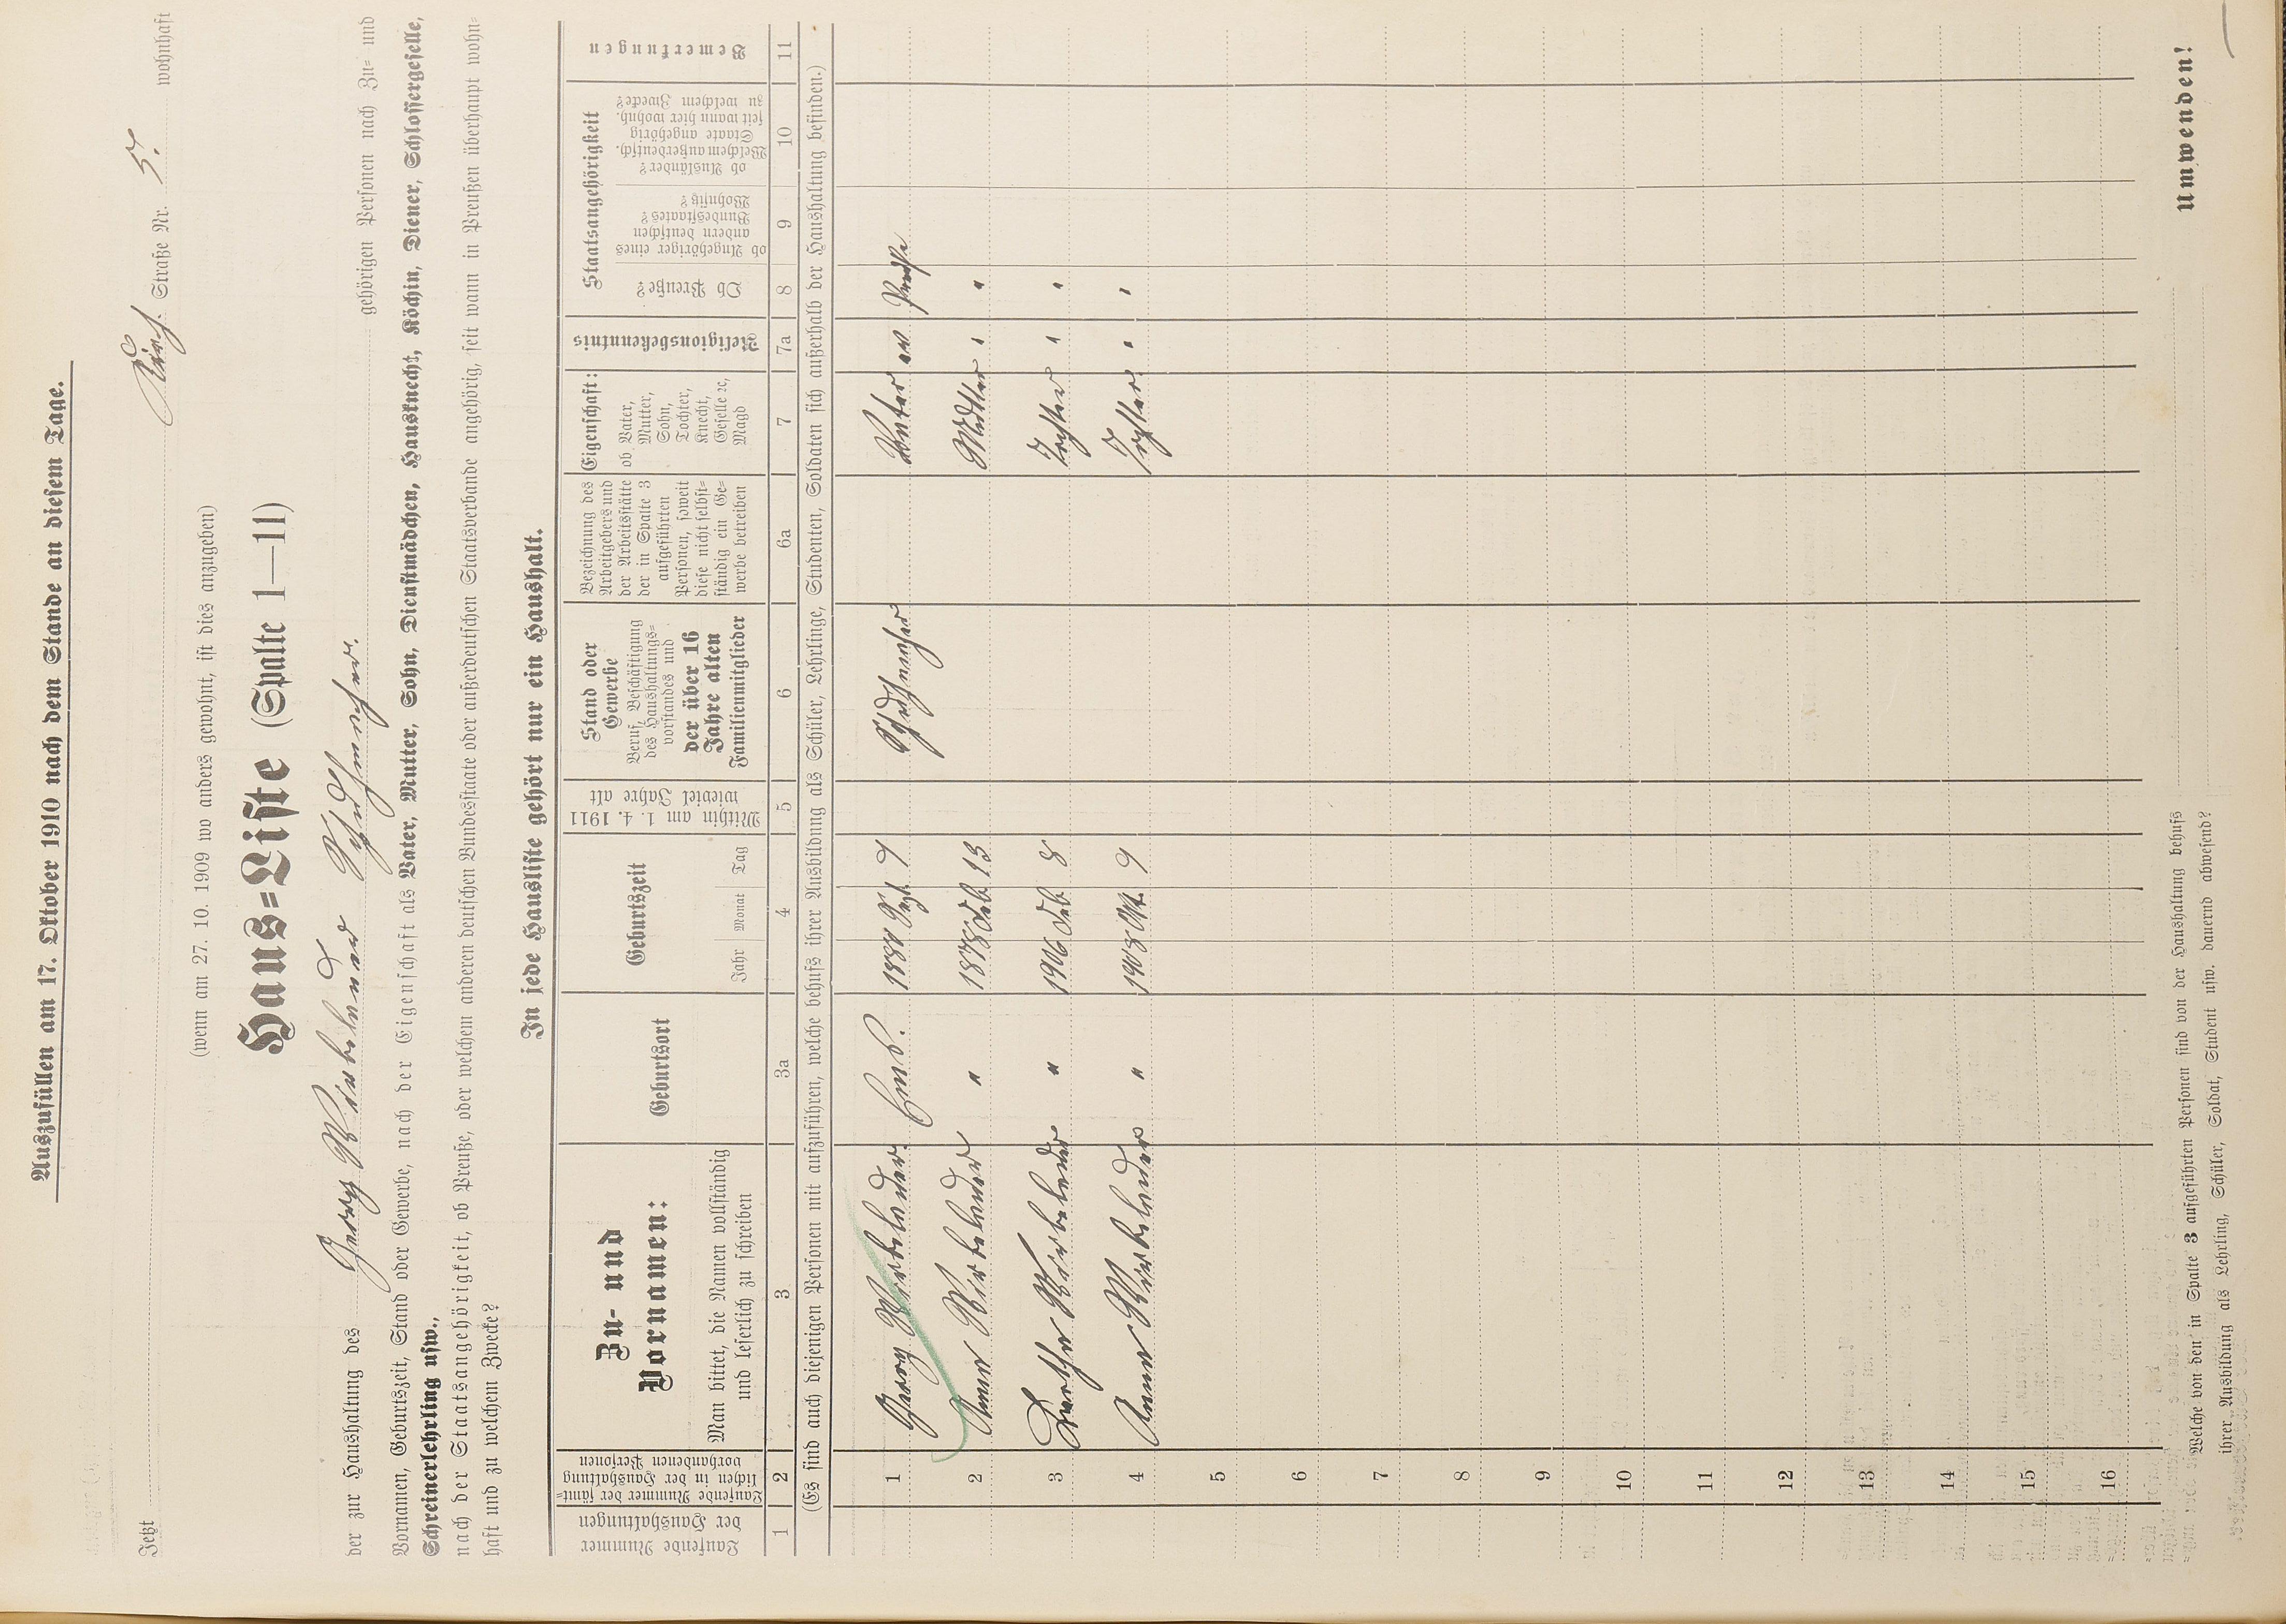 Auszufüllen am 17. Oktober 1910 nach dem Stande an diesem Tage.
Jetzt Kirch. Straße Nr. 5. wohnhaft
(wenn am 27. 10. 1909 wo anders gewohnt, ist dies anzugeben)
Haus=Liste (Spalte 1—11)
der zur Haushaltung des Georg Schuhmacher gehörigen Personen nach Zu= und
Vornamen, Geburtszeit, Stand oder Gewerbe, nach der Eigenschaft als Vater, Mutter, Sohn, Dienstmädchen, Hausknecht, Köchin, Diener, Schlossergeselle,
Schreinerlehrling usw.,
nach der Staatsangehörigkeit, ob Preuße, oder welchem anderen deutschen Bundesstaate oder außerdeutschen Staatsverbande angehörig, seit wann in Preußen überhaupt wohn=
haft und zu welchem Zwecke?
In jede Hausliste gehört nur ein Haushalt.
Laufende Nummer
der Haushaltungen
Laufende Nummer der sämt=
lichen in der Haushaltung
vorhandenen Personen
Zu- und
Vornamen:
Man bittet, die Namen vollständig
und leserlich zu schreiben
Geburtsort
Geburtszeit
Jahr Monat Tag
Mithin am 1. 4. 1911
wieviel Jahre alt
Stand oder
Gewerbe
Beruf, Beschäftigung
des Haushaltungs=
vorstandes und
der über 16
Jahre alten
Familienmitglieder
Bezeichnung des
Arbeitgebers und
der Arbeitsstätte
der in Spalte 3
aufgeführten
Personen, soweit
diese nicht selbst=
ständig ein Ge=
werbe betreiben
Eigenschaft:
ob Vater,
Mutter,
Sohn,
Tochter,
Knecht,
Geselle ꝛc,
Magd
Religionsbekenntnis
Staatsangehörigkeit
Ob Preuße?
ob Angehöriger eines
andern deutschen
Bundesstaates?
Wohnsitz?
ob Ausländer?
Welchem außerdeutsch.
Staate angehörig
seit wann hier wohnh.
zu welchem Zwecke?
Bemerkungen
1 2 3 3a 4 5 6 6a 7 7a 8 9 10 11
(Es sind auch diejenigen Personen mit aufzuführen, welche behufs ihrer Ausbildung als Schüler, Lehrlinge, Studenten, Soldaten sich außerhalb der Haushaltung befinden.)
1 Georg Sept. Schuhmacher Vater ev
2 Anna " 1878 Feb. 13 Mutter " "
3 " 1906 Feb. 8 Tochter " "
4 Anna " 1908 Okt. 9 Tochter " "
5
6
7
8
9
10
11
12
13
14
15
16
Welche von den in Spalte 3 aufgeführten Personen sind von der Haushaltung behufs
ihrer Ausbildung als Lehrling, Schüler, Soldat, Student usw. dauernd abwesend?
Umwenden!